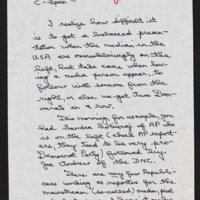 C-Span
I realize how difficult it
is to get a balanced presen-
tation when the media in the
USA are overwhelmingly on the
left, but take care when hav-
ing a media person appear, to
follow with someone from the
right, or else we get two Dem-
ocrats in a row.
This morning, for example, you
had Sandra Sobieraj of AP who
is on the left (check AP report-
ers, they tend to be very pro-
Democrat Party) followed by
Joe Andrew of the DNC.
There are very few Republi-
cans working as reporters for the
mainstream (so-called) media, prob-